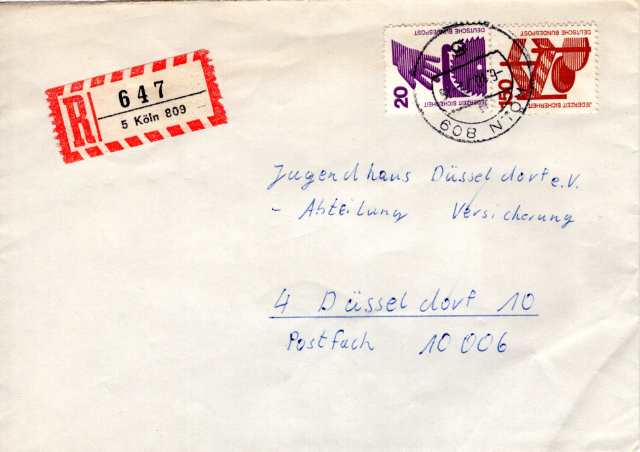 R
647
5 Köln 809
DEUTSCHE BUNDESPOST
20
JEDERZEIT SICHERHEIT
DEUTSCHE BUNDESPOST
150
JEDERZEIT SICHERHEIT
KÖLN 809
Jugendhaus Düsseldorf e.V.
- Abteilung Versicherung
4 Düsseldorf 10
Postfach 10006